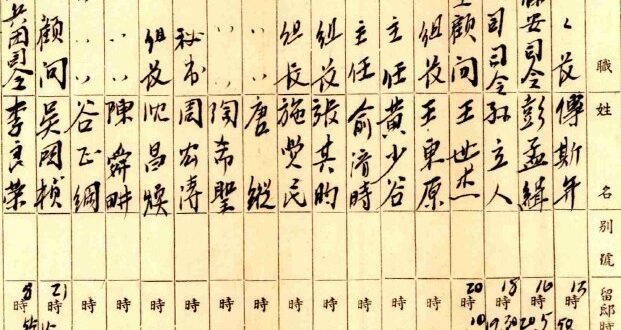 職 姓名 別號 留邸時
長 傅斯年 12時50
保安司令 彭孟緝 16時5
司司令 孫立人 18時20
顧問 王世杰 20時10
組長 王東原 時
主任 黃少谷 時
主任 俞濟時 時
組長 張其昀 時
組長 施覺民 時
〃 唐縱 時
〃 陶希聖 時
秘書 周宏濤 時
組長 沈昌煥 時
〃 陳舜畊 時
〃 谷正綱 時
顧問 吳國楨 21時
兵團司令 李良榮 8時